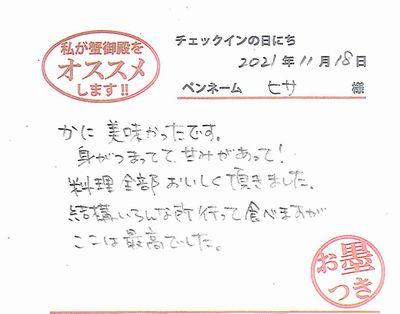 私が蟹御殿を
オススメ
します!!
チェックインの日にち
2021年11月18日
ペンネーム ヒサ 様
かに 美味かったです。
身がつまってて、甘みがあって!
料理全部おいしく頂きました。
結構、いろんな所行って食べますが
ここは最高でした。
お墨
つき